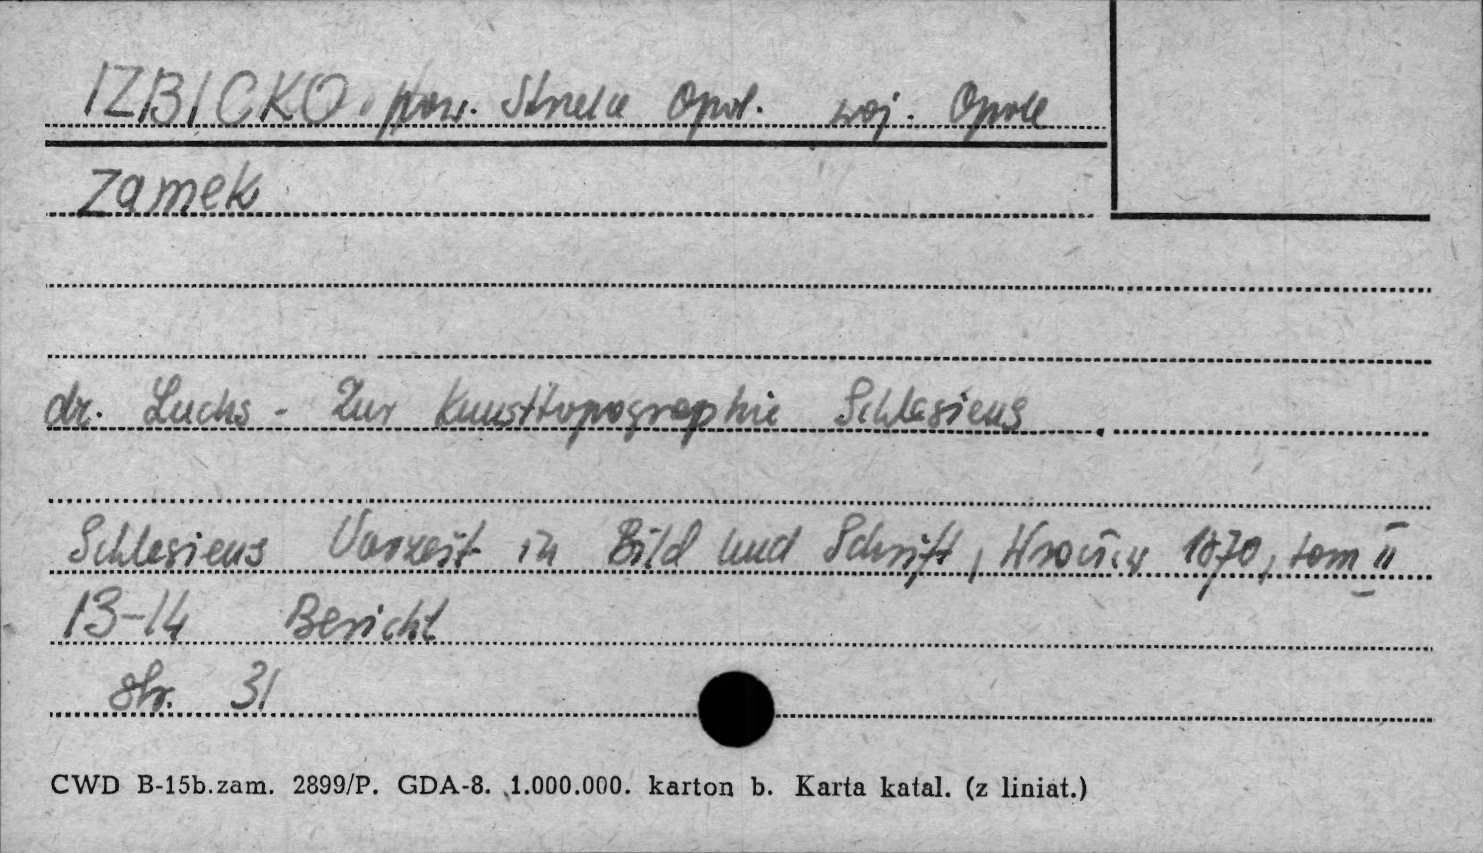 IZBICKO pow. Strzelce Opol. woj. Opole
Zamek
dr. Luchs - Zur Kunsttopographie Schlesiens
Schlesiens Vorzeit in Bild und Schrift, Wrocław 1870, tom II
13-14 Bericht
str. 31
CWD B-15b.zam. 2899/P. GDA-8. 1.000.000. karton b. Karta katal. (z liniat.)